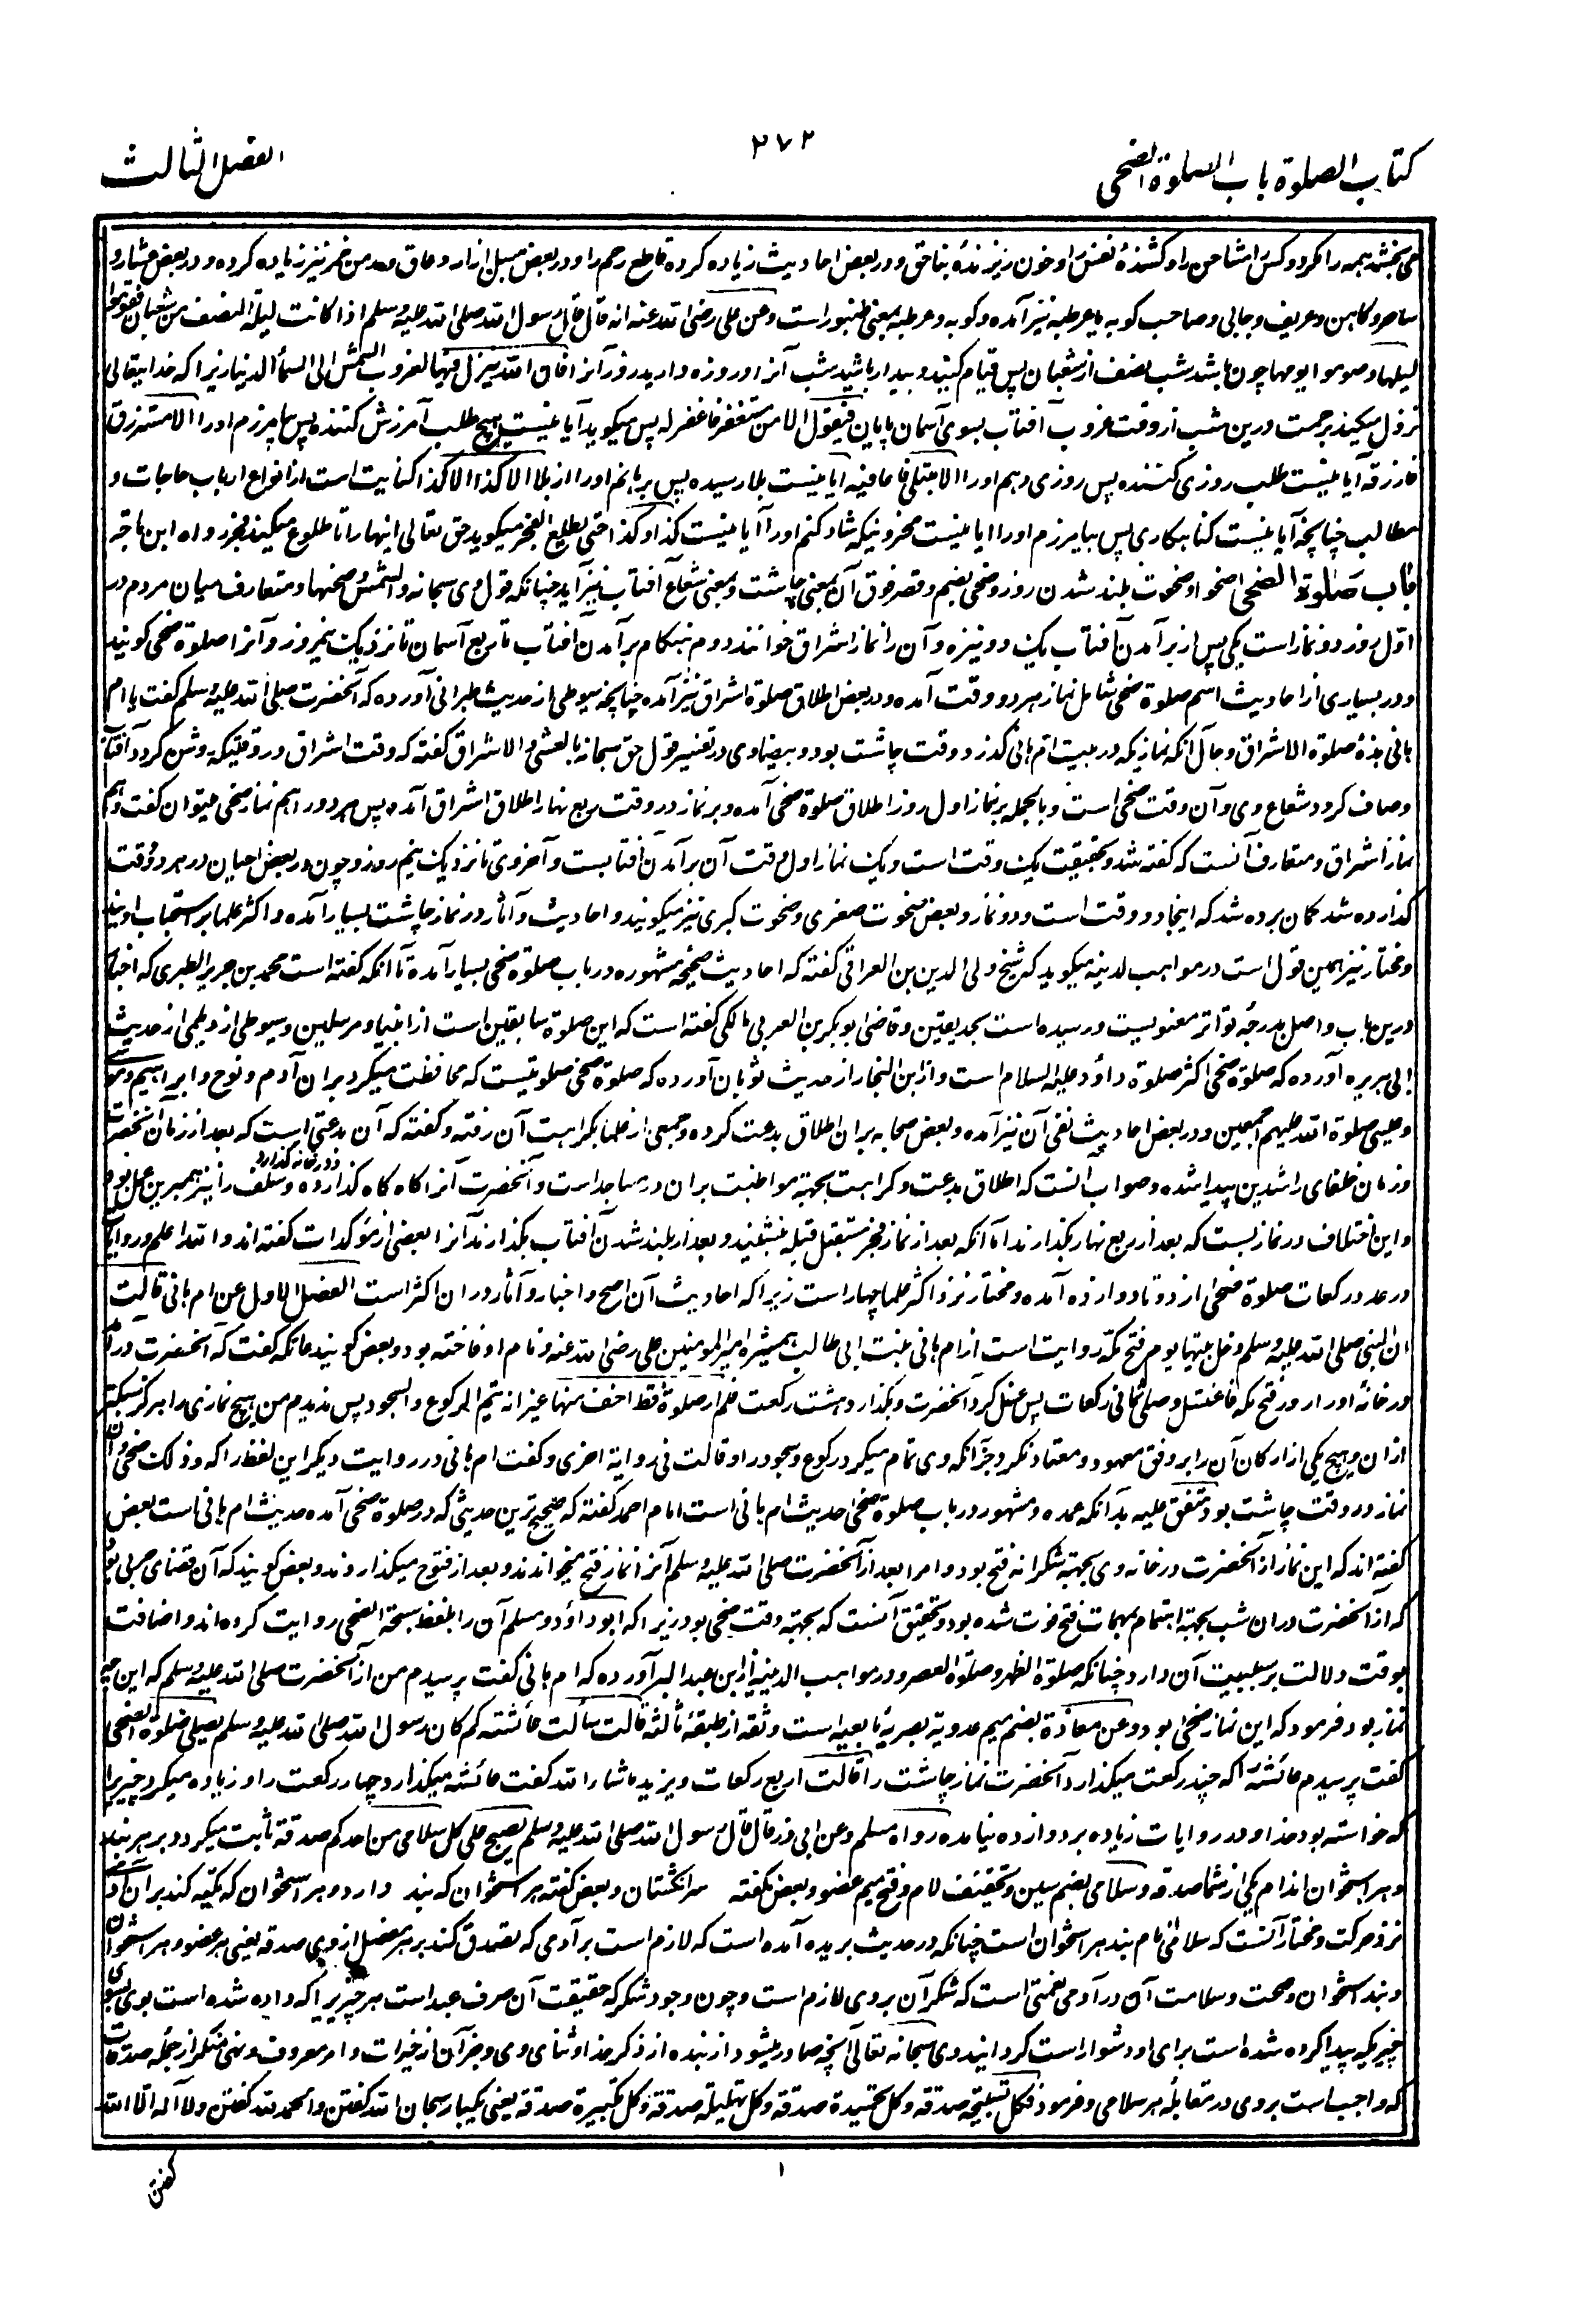 كتاب الصلوة باب الصلوة الضحى
۲۷۲
الفصل الثالث
می بخشد همه را مگر دو کس را مشاحن را و کشندهٔ نفس را و خون ریزنده بناحق و در بعض احادیث زیاده کرده قاطع رحم را و در بعض مسبل ازار و عاق و مدمن خمر نیز زیاده کرده و در بعض عشار و
ساحر و کاهن و عریف و جابی و صاحب کوبه یا عرطبه نیز آمده و کوبه و عرطبه بمعنی طنبور است وعن علی رضی الله عنه انه قال قال رسول الله صلی الله علیه وسلم اذا کانت لیلة النصف من شعبان فقوموا
لیلها وصوموا یومها چون باشد شب نصف از شعبان پس قیام کنید و بیدار باشید شب آنرا و روزه دارید روز آنرا فان الله ینزل فیها لغروب الشمس الی السماء الدنیا زیرا که خدایتعالی
نزول میکند برحمت درین شب از وقت غروب آفتاب بسوی آسمان پایان فیقول الا من مستغفر فاغفر له پس میگوید آیا نیست هیچ طلب آمرزش کننده پس بیامرزم او را الا مسترزق
فارزقه آیا نیست طلب روزی کننده پس روزی دهم او را الا مبتلی فاعافیه آیا نیست بلا رسیده پس برهانم او را از بلا الا کذا الا کذا کنایت است از انواع ارباب حاجات و
مطالب چنانچه آیا نیست گناهکاری پس بیامرزم او را ایا نیست محزونیکه شاد کنم او را آیا نیست کذا و کذا حتی یطلع الفجر میگوید حق تعالی اینها را تا طلوع میکند فجر رواه ابن ماجه
باب صلوة الضحی اضحوا و ضحوت بلند شدن روز و ضحی بضم و قصر فوق آن بمعنی چاشت و بمعنی شعاع آفتاب نیز آید چنانکه قول وی سبحانه والشمس وضحها و متعارف میان مردم در
اول روز دو نماز است یکی پس از برآمدن آفتاب یک دو نیزه و آن را نماز اشراق خوانند دوم هنگام برآمدن آفتاب تا ربع آسمان تا نزدیک نیمروز و آنرا صلوة ضحی گویند
و در بسیاری از احادیث اسم صلوة ضحی شامل نماز هر دو وقت آمده و در بعض اطلاق صلوة اشراق نیز آمده چنانچه سیوطی از حدیث طبرانی آورده که آنحضرت صلی الله علیه وسلم گفت یا ام
هانی هذه صلوة الاشراق و حال آنکه نمازیکه در بیت ام هانی گذرد وقت چاشت بود و بیضاوی در تفسیر قول حق سبحانه بالعشی والاشراق گفته که وقت اشراق در وقتیکه روشن گردد آفتاب
و صاف گردد شعاع وی و آن وقت ضحی است و بالجمله بر نماز اول روز اطلاق صلوة ضحی آمده و بر نماز در وقت ربع نهار اطلاق اشراق آمده پس هر دو را هم نماز ضحی میتوان گفت و هم
نماز اشراق و متعارف آنست که گفته شد و بحقیقت یک وقت است و یک نماز اول وقت آن برآمدن آفتابست و آخر وی تا نزدیک نیم روز و چون در بعض احیان در هر دو وقت
گذارده شد گمان برده شد که اینجا دو وقت است و دو نماز و بعض ضحوت صغری و ضحوت کبری نیز میگویند و احادیث و آثار در نماز چاشت بسیار آمده و اکثر علما بر استحباب اویند
و مختار نیز همین قول است در مواهب لدنیه میگوید که شیخ ولی الدین بن العراقی گفته که احادیث صحیحه مشهوره در باب صلوة ضحی بسیار آمده تا آنکه گفته است محمد بن جریر الطبری که اخبار
درین باب واصل بدرجهٔ تواتر معنویست و رسیده است بحد یقین و قاضی ابوبکر بن العربی مالکی گفته است که این صلوة سابقین است از انبیا و مرسلین و سیوطی از دیلمی از حدیث
ابی هریره آورده که صلوة ضحی اکثر صلوة داؤد علیه السلام است و از ابن النجار از حدیث ثوبان آورده که صلوة ضحی صلوتیست که محافظت میکرد بر ان آدم و نوح و ابراهیم و موسی
و عیسی صلوة الله علیهم اجمعین و در بعض احادیث نفی آن نیز آمده و بعض صحابه بر ان اطلاق بدعت کرده و جمعی از علما بکراهت آن رفته و گفته که آن بدعتی است که بعد از زمان آنحضرت
و زمان خلفای راشدین پیدا شده و صواب آنست که اطلاق بدعت و کراهت بجهتة مواظبت بر ان در مساجد است و آنحضرت آنرا گاه گاه گذارده و در خانه گذارد و سلف را نیز همبرین عمل بود
و این اختلاف در نماز یست که بعد از ربع نهار بگذارند اما آنکه بعد از نماز فجر مستقبل قبله نشینند و بعد از بلند شدن آفتاب بگذارند آنرا بعضی از مؤکدات گفته اند والله اعلم و روایات
در عدد رکعات صلوة ضحی از دو تا دوازده آمده و مختار نزد اکثر علما چهار است زیرا که احادیث آن اصح و اخبار و آثار در ان اکثر است الفصل الاول عن ام هانی قالت
ان النبی صلی الله علیه وسلم دخل بیتها یوم فتح مکه روایت است از ام هانی بنت ابی طالب همشیره امیر المومنین علی رضی الله عنه و نام او فاخته بود و بعض گویند عاتکه گفت که آنحضرت درآمد
در خانهٔ او را روز فتح مکه فاغتسل وصلی ثمانی رکعات پس غسل کرد آنحضرت و بگذارد هشت رکعت فلم ار صلوة قط اخف منها غیر انه یتم الرکوع والسجود پس ندیدم من هیچ نمازی را هرگز سبکتر
ازان و هیچ یکی از ارکان آن را بر وفق معهود و معتاد نکرد جز آنکه وی تمام میکرد رکوع و سجود را وقالت فی روایة اخری و گفت ام هانی در روایت دیگر این لفظ را که وذلک ضحی و آن
نماز در وقت چاشت بود متفق علیه بدآنکه عمده و مشهور در باب صلوة ضحی حدیث ام هانی است امام احمد گفته که صحیح ترین حدیثی که در صلوة ضحی آمده حدیث ام هانی است بعض
گفته اند که این نماز از آنحضرت در خانه وی بجهتة شکرانه فتح بود و امرا بعد از آنحضرت صلی الله علیه وسلم آنرا نماز فتح میخواندند و بعد از فتوح میگذاردند و بعض گویند که آن قضای حزبی بود
که از آنحضرت دران شب بجهتة اهتمام بمهمات فتح فوت شده بود و تحقیق آنست که بجهتة وقت ضحی بود زیرا که ابو داؤد و مسلم آن را بلفظ سبحة الضحی روایت کرده اند و اضافت
بوقت دلالت بر سببیت آن دارد چنانکه صلوة الظهر و صلوة العصر و در مواهب الدنیه از ابن عبد البر آورده که ام هانی گفت پرسیدم من از آنحضرت صلی الله علیه وسلم که این چه
نماز بود فرمود که این نماز ضحی بود وعن معاذة بضم میم عدویه بصریه تابعیه است و ثقه از طبقهٔ ثالثه قالت سألت عائشة کم کان رسول الله صلی الله علیه وسلم یصلی صلوة الضحی
گفت پرسیدم عائشه را که چند رکعت میگذارد آنحضرت نماز چاشت را قالت اربع رکعات ویزید ما شاء الله گفت عائشه میگذارد چهار رکعت را و زیاده میکرد چیزیرا
که خواسته بود خدا و در روایات زیاده بر دوازده نیامده رواه مسلم وعن ابی ذر قال قال رسول الله صلی الله علیه وسلم یصبح علی کل سلامی من احدکم صدقة ثابت میگردد بر هر بند
و هر استخوان اندام یکی از شما صدقه و سلامی بضم سین و تخفیف لام و فتح میم عضو و بعض گفته سر انگشتان و بعض گفته هر استخوان که بند دارد و هر استخوان که تکیه کند بر آن آدمی
نزد حرکت و مختار آنست که سلامی نام بند هر استخوان است چنانکه در حدیث بریده آمده است که لازم است بر آدمی که تصدق کند بر هر مفصل از وی صدقه یعنی هر عضو و هر استخوان
و بند استخوان و صحت و سلامت آن در آدمی نعمتی است که شکر آن بر وی لازم است و چون وجود شکر که حقیقت آن صرف عبد است هر چیزیرا که داده شده است بوی بسوی
چیزیکه پیدا کرده شده است برای او دشوار است گردانید وی سبحانه تعالی آنچه صادر میشود از بنده از ذکر خدا و ثنای وی و جز آن از خیرات و امر معروف و نهی منکر از جمله صدقات
که واجب است بروی در مقابلهٔ هر سلامی و فرمود فکل تسبیحة صدقة وکل تحمیدة صدقة وکل تهلیلة صدقة وکل تکبیرة صدقة یعنی یکبار سبحان الله گفتن و الحمد لله گفتن و لا اله الا الله
گفتن
۱